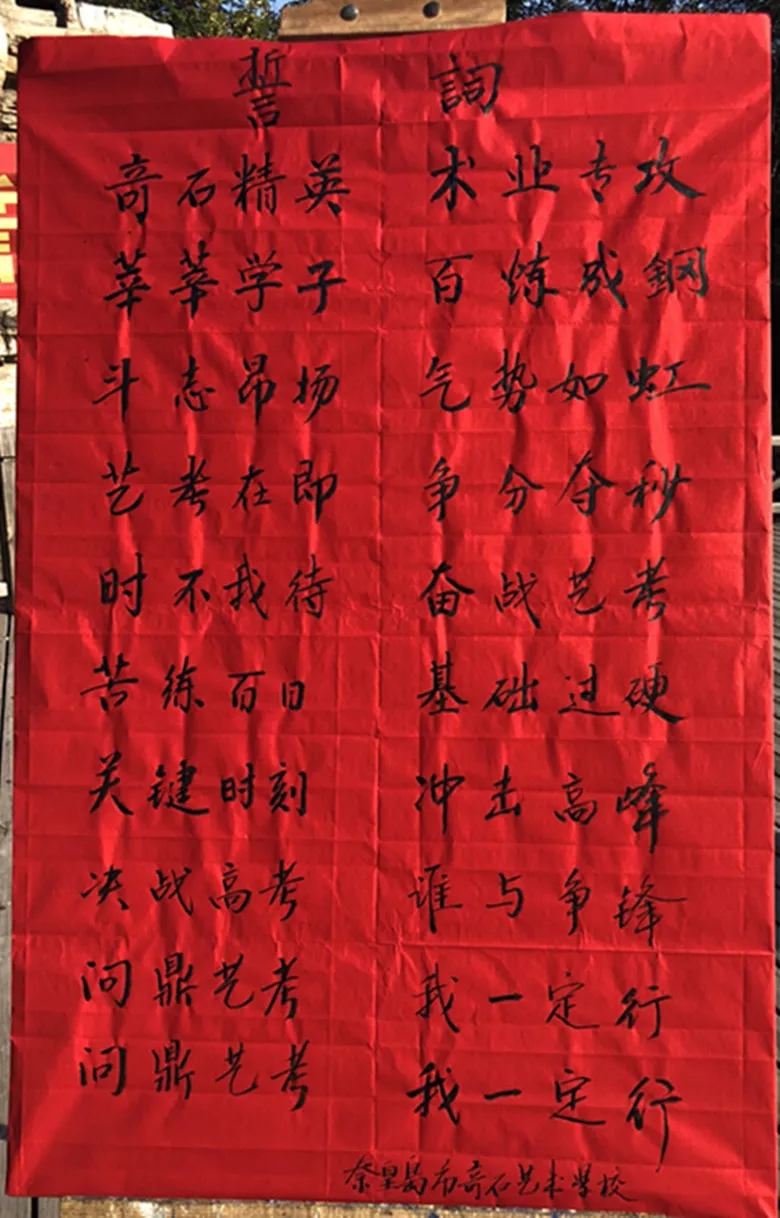 誓詞
奇石精英 术业专攻
莘莘学子 百炼成鋼
斗志昂场 气势如虹
艺考在即 争分夺秒
时不我待 奋战艺考
苦练百日 基础过硬
关键时刻 冲击高峰
决战高考 谁与争锋
问鼎艺考 我一定行
问鼎艺考 我一定行
秦皇岛市奇石艺术学校